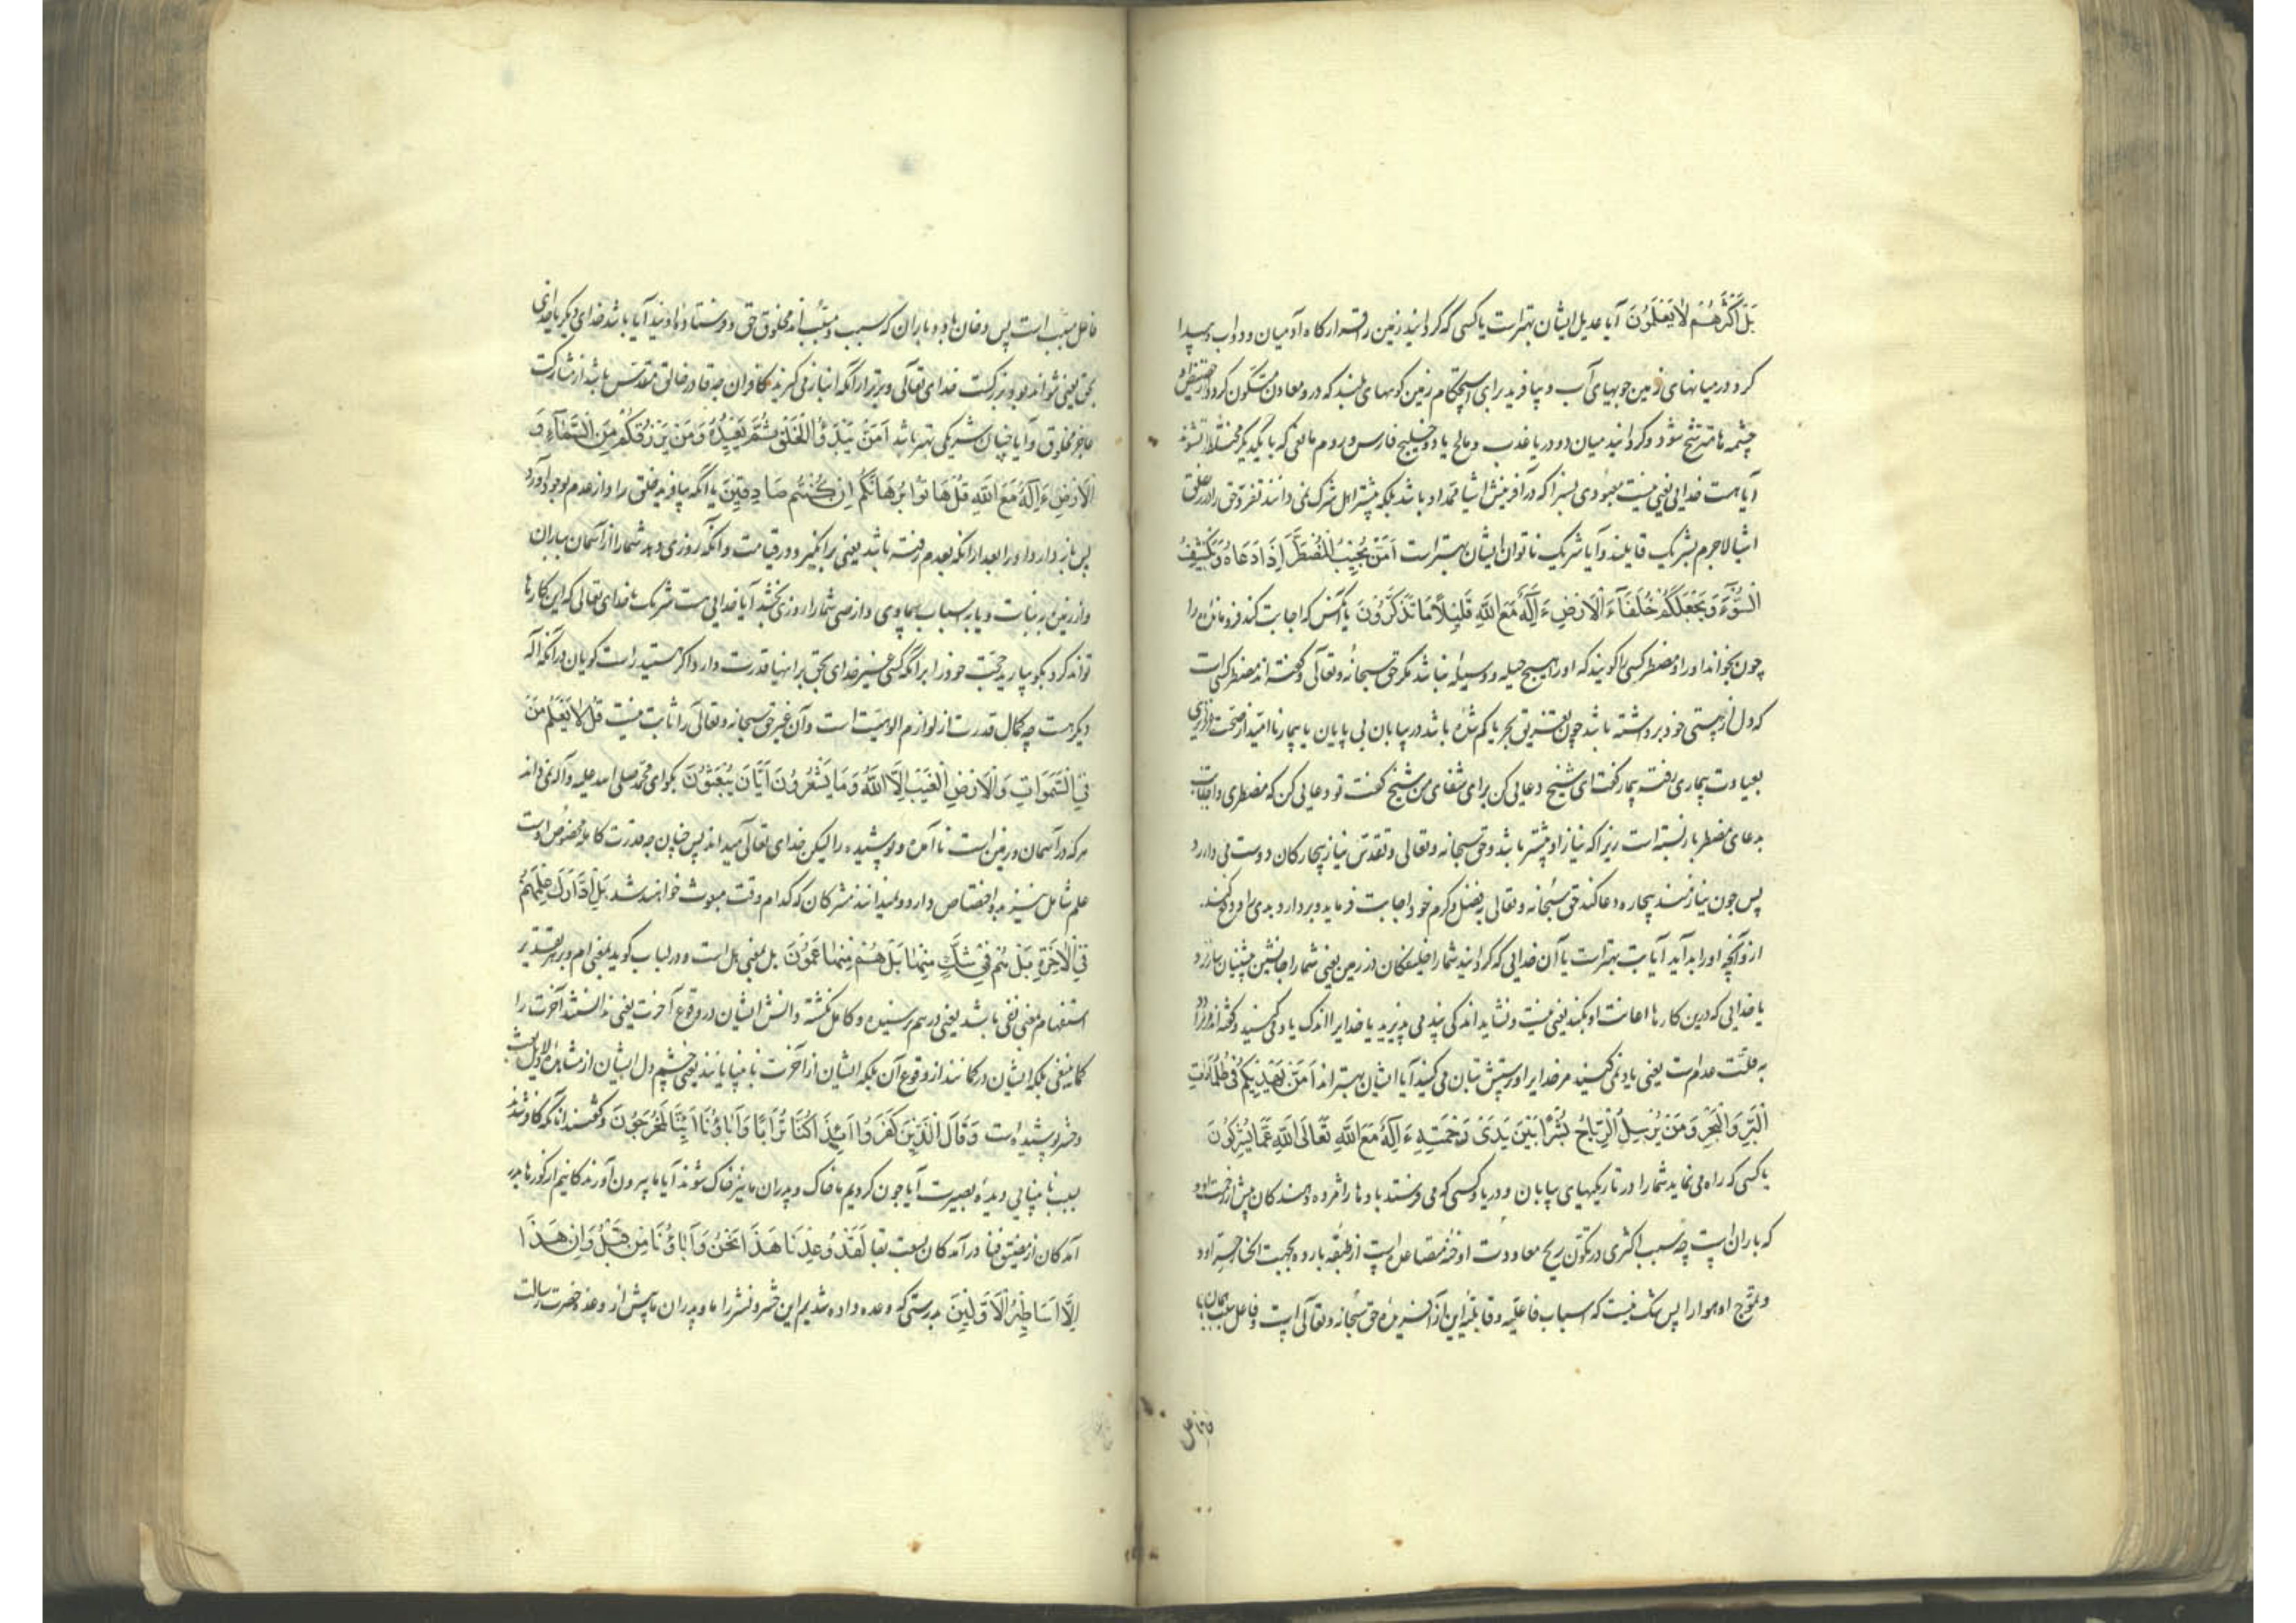 بَلْ أَكْثَرُهُمْ لَا يَعْلَمُونَ آیا عدیل ایشان بهتر است یا کسی که گردانید زمین را قرارگاه آدمیان و دواب و پیدا
کرد و در میانهای زمین جویهای آب و بیافرید برای استحکام زمین کوههای بلند که درو معادن متکون گردد و از حضیض او
چشمه ها مترشح شود و گردانید میان دو دریا عذب و مالح یا دو خلیج فارس و روم مانعی که با یکدیگر مختلط نشوند
آیا هست خدایی یعنی نیست معبودی بسزا که در آفرینش اشیا ممد او باشد بلکه بیشتر اهل شرک نمی دانند تفرد حق را در خلق
اشیا لاجرم بشریک قایلند و آیا شریک ناتوان ایشان بهتر است أَمَّنْ يُجِيبُ الْمُضْطَرَّ إِذَا دَعَاهُ وَيَكْشِفُ
السُّوءَ وَيَجْعَلُكُمْ خُلَفَاءَ الْأَرْضِ ءَإِلَهٌ مَعَ اللَّهِ قَلِيلًا مَا تَذَكَّرُونَ یا آنکس که اجابت کند فرومانده را
چون بخواند او را و مضطر کسی را گویند که او را هیچ حیله و وسیله نباشد مگر حق سبحانه و تعالی و گفته اند مضطر کسی است
که دل از هستی خود برداشته باشد چون غریق بحر یا گم شده باشد در بیابان بی پایان یا بیمار ناامید از صحت
بعیادت بیماری رفته بیمار گفت ای شیخ دعایی کن برای شفای من شیخ گفت تو دعایی کن که مضطری و اجابت
بدعای مضطر باز بسته است زیرا که نیاز او بیشتر باشد و حق سبحانه و تعالی و تقدس نیاز بیچارگان دوست می دارد
پس چون نیازمند بیچاره دعا کند حق سبحانه و تعالی بفضل و کرم خود اجابت فرماید و بردارد بدی را و دفع کند
از و آنچه او را بد آید آیا بت بهتر است یا آن خدایی که گردانید شما را خلیفگان در زمین یعنی شما را جانشین پیشینیان سازد
یا خدایی که درین کارها اعانت او بکند یعنی نیست و نشاید اندکی پند می پذیرید یا خدایرا اندک یاد می کنید و گفته اند
به قلت عدم است یعنی یاد نمی کنید مر خدایرا و پرستش بتان می کنید آیا ایشان بهترند أَمَّنْ يَهْدِيكُمْ فِي ظُلُمَاتِ
الْبَرِّ وَالْبَحْرِ وَمَنْ يُرْسِلُ الرِّيَاحَ بُشْرًا بَيْنَ يَدَيْ رَحْمَتِهِ ءَإِلَهٌ مَعَ اللَّهِ تَعَالَى اللَّهُ عَمَّا يُشْرِكُونَ
یا کسی که راه می نماید شما را در تاریکیهای بیابان و دریا و کسی که می فرستد بادها را مژده دهندگان پیش از رحمت او
که باران است چه سبب اکثری در تکون ریح معاودت ادخنه متصاعد است از طبقه بارده بجهت انکسار حر او
و تموج او هوا را پس شک نیست که اسباب فاعلیه و قابلیه این از آفریده حق سبحانه و تعالی است و فاعل سبب همان
فاعل مسبب است پس دخان و باد و باران که سبب و مسبب اند مخلوق حق و فرستاده اویند آیا باشد خدای دیگر با خدای
بحق یعنی نتواند بود و بزرگست خدای تعالی و برتر از آنکه انباز می گیرند کافران چه قادر خالق مقدس باشد از مشارکت
عاجز مخلوق و آیا چنان شریکی بهتر باشد أَمَّنْ يَبْدَؤُا الْخَلْقَ ثُمَّ يُعِيدُهُ وَمَنْ يَرْزُقُكُمْ مِنَ السَّمَاءِ وَ
الْأَرْضِ ءَإِلَهٌ مَعَ اللَّهِ قُلْ هَاتُوا بُرْهَانَكُمْ إِنْ كُنْتُمْ صَادِقِينَ یا آنکه بیافرید خلق را و از عدم بوجود آورد
پس باز دارد او را بعد از آنکه بعدم رفته باشد یعنی برانگیزد در قیامت و آنکه روزی دهد شما را از آسمان بباران
و از زمین به نبات و یا به اسباب سماوی و ارضی شما را روزی بخشد آیا خدایی هست شریک با خدای تعالی که این کارها
تواند کرد بگو بیارید حجت خود را برانکه کسی غیر خدای بحق بر اینها قدرت دارد اگر هستید راست گویان درآنکه اله
دیگر هست چه کمال قدرت از لوازم الوهیت است و آن غیر حق سبحانه و تعالی را ثابت نیست قُلْ لَا يَعْلَمُ مَنْ
فِي السَّمَوَاتِ وَالْأَرْضِ الْغَيْبَ إِلَّا اللَّهُ وَمَا يَشْعُرُونَ أَيَّانَ يُبْعَثُونَ بگو ای محمد صلی الله علیه و آله نمی داند
هر که در آسمان و زمین است نا آمده و پوشیده را لیکن خدای تعالی میداند پس چنانچه قدرت کامله مخصوص اوست
علم شامل نیز بدو اختصاص دارد و نمیدانند مشرکان که کدام وقت مبعوث خواهند شد بَلِ ادَّارَكَ عِلْمُهُمْ
فِي الْآخِرَةِ بَلْ هُمْ فِي شَكٍّ مِنْهَا بَلْ هُمْ مِنْهَا عَمُونَ بل بمعنی هل است و در لباب گوید بمعنی ام و بر هر تقدیر
استفهام بمعنی نفی باشد یعنی درهم نرسیده و کامل نگشته دانش ایشان در وقوع آخرت یعنی ندانستند آخرت را
کما ینبغی بلکه ایشان در گمانند از وقوع آن بلکه ایشان از آخرت نابینایانند یعنی چشم دل ایشان از مشاهده دلایل بعث
و حشر پوشیده است وَقَالَ الَّذِينَ كَفَرُوا أَئِذَا كُنَّا تُرَابًا وَآبَاؤُنَا أَئِنَّا لَمُخْرَجُونَ و گفتند آنانکه کافر شدند
بسبب نابینایی دیده بصیرت آیا چون گردیم ما خاک و پدران ما نیز خاک شوند آیا ما بیرون آوردگانیم از گورها بدر
آمدگان از مضیق فنا درآمدگان بسعت بقا لَقَدْ وُعِدْنَا هَذَا نَحْنُ وَآبَاؤُنَا مِنْ قَبْلُ إِنْ هَذَا
إِلَّا أَسَاطِيرُ الْأَوَّلِينَ بدرستی که وعده داده شدیم این حشر و نشر را ما و پدران ما پیش از وعده حضرت رسالت